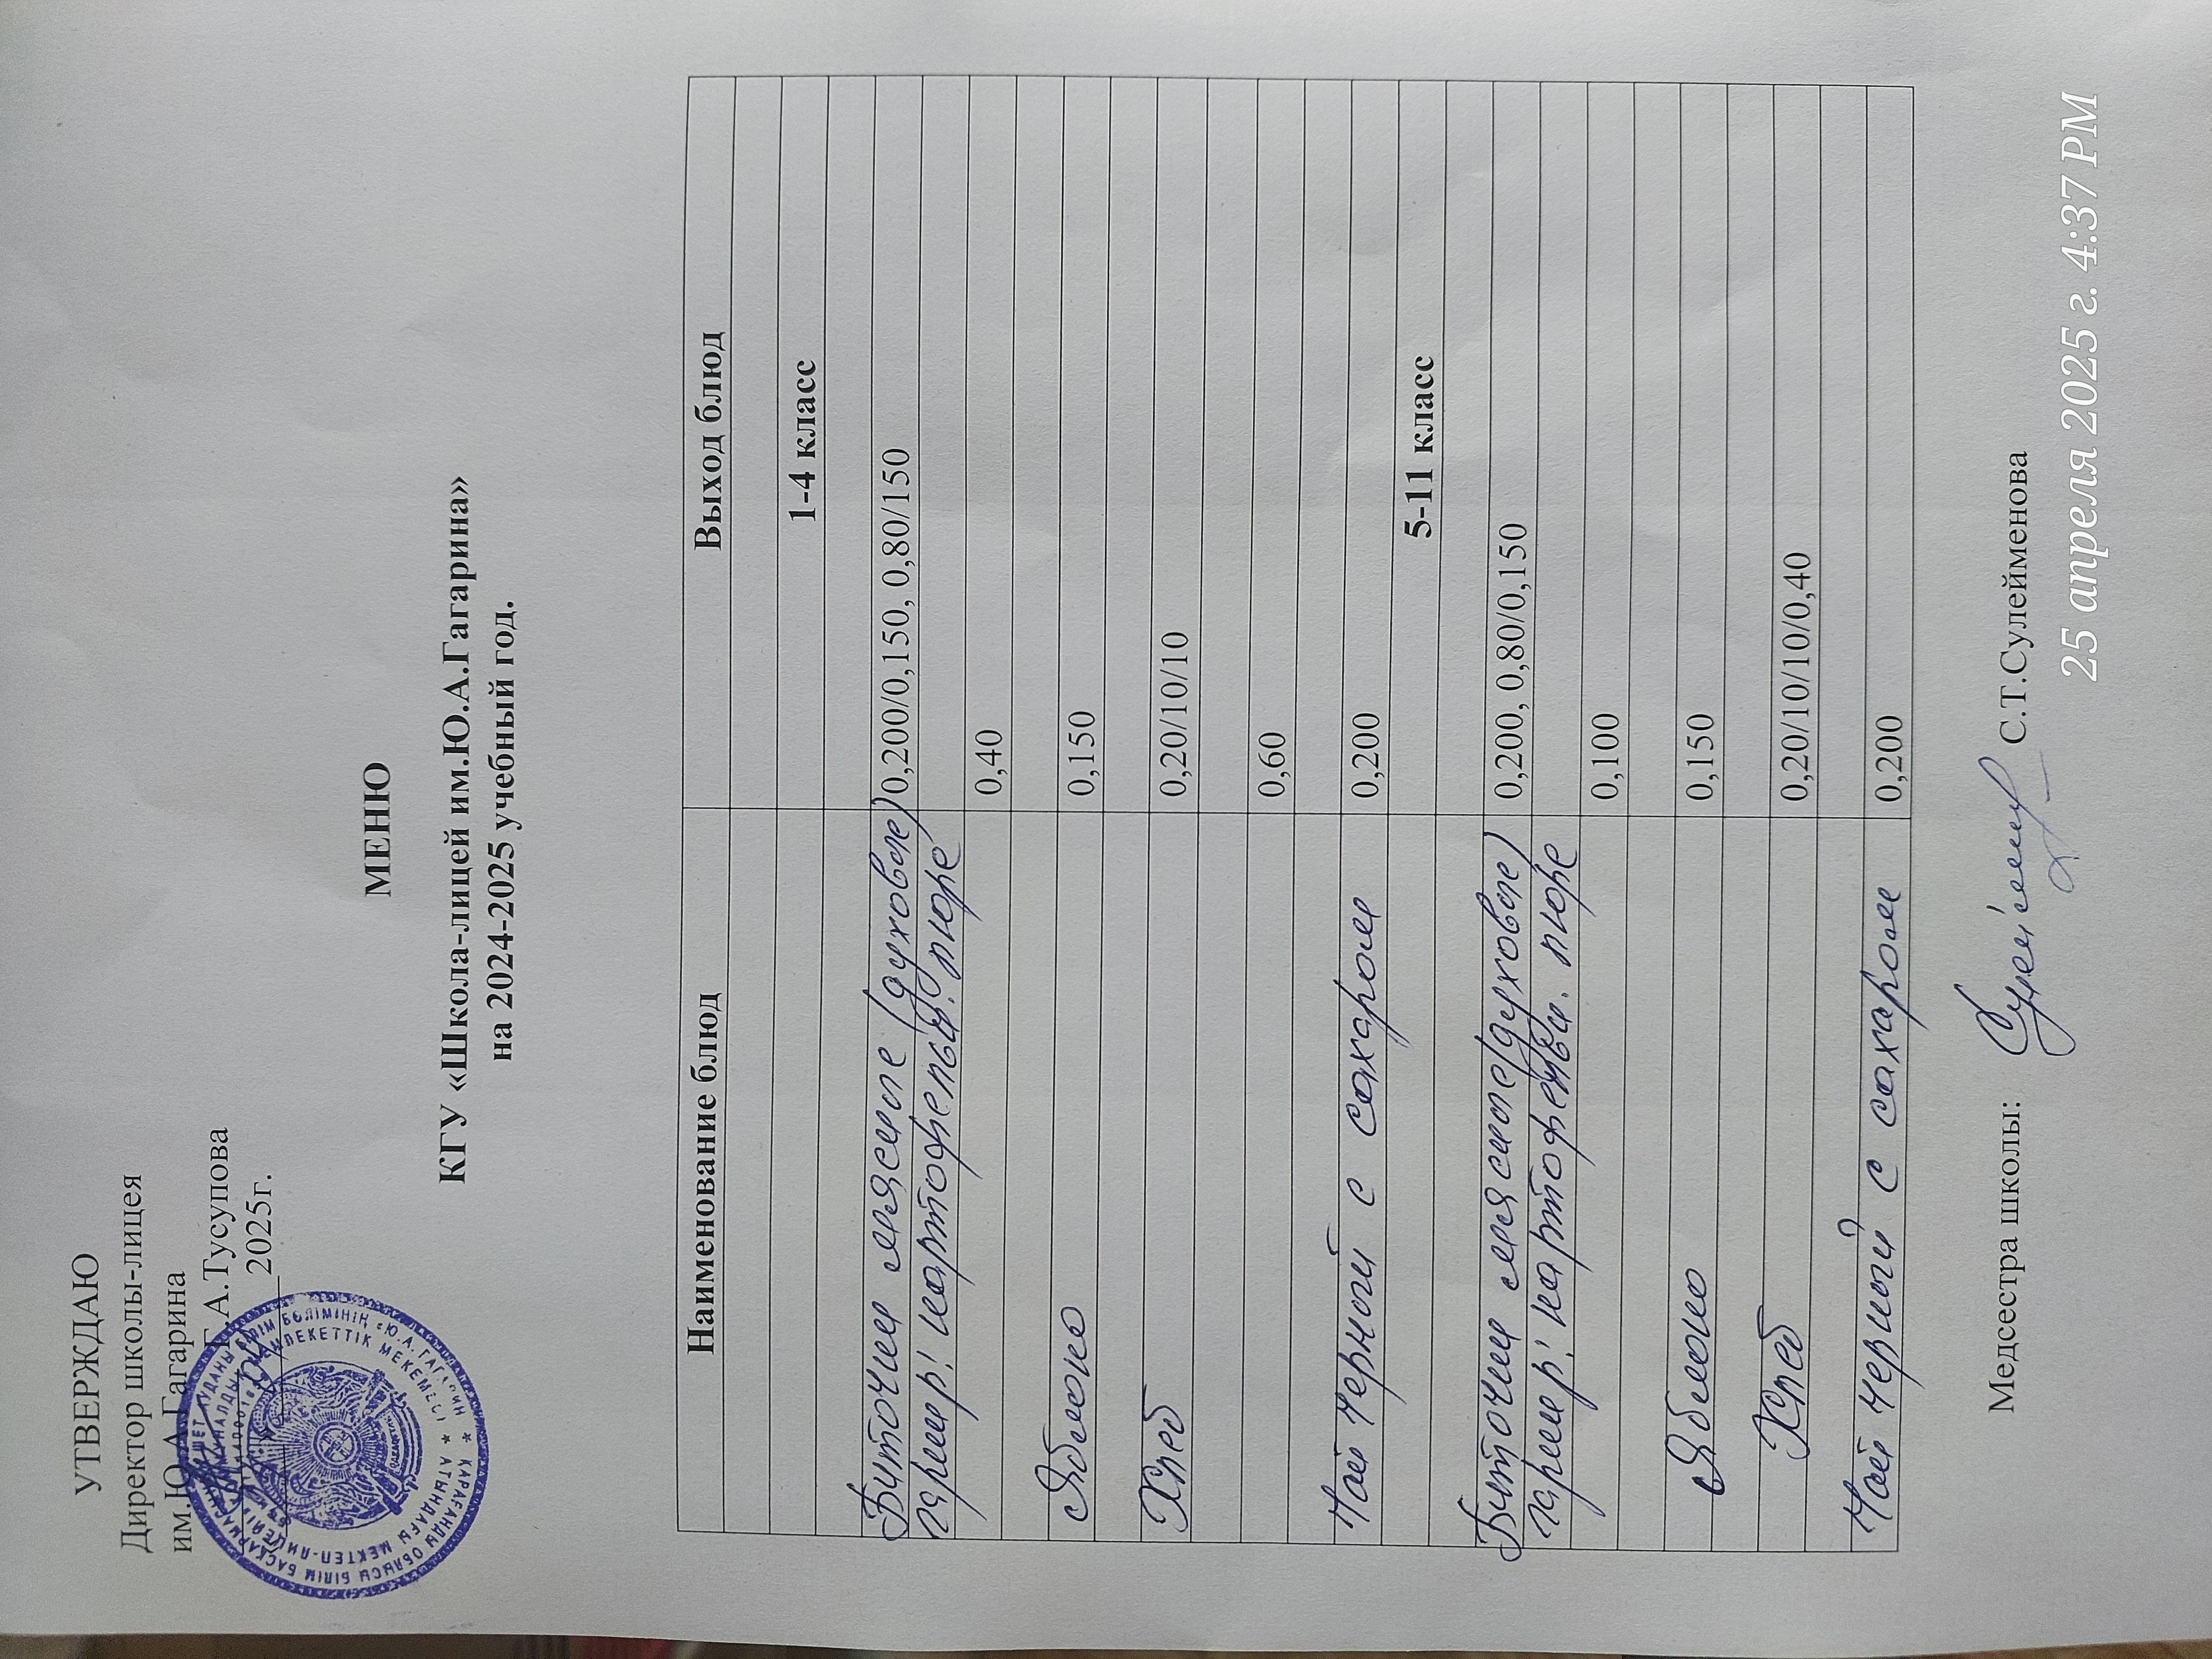 УТВЕРЖДАЮ
Директор школы-лицея
им.Ю.А.Гагарина
Г.А.Тусупова
2025г.
МЕНЮ
КГУ «Школа-лицей им.Ю.А.Гагарина»
на 2024-2025 учебный год.
Наименование блюд Выход блюд
1-4 класс
Биточки мясные (духовые) 0,200/0,150, 0,80/150
гарнир: картофельн. пюре
0,40
Яблоко 0,150
Хлеб 0,20/10/10
0,60
Чай черный с сахаром 0,200
5-11 класс
Биточки мясные (духовые) 0,200, 0,80/0,150
гарнир: картофельн. пюре
0,100
Яблоко 0,150
Хлеб 0,20/10/10/0,40
Чай черный с сахаром 0,200
Медсестра школы: С.Т.Сулейменова
25 апреля 2025 г. 4:37 PM